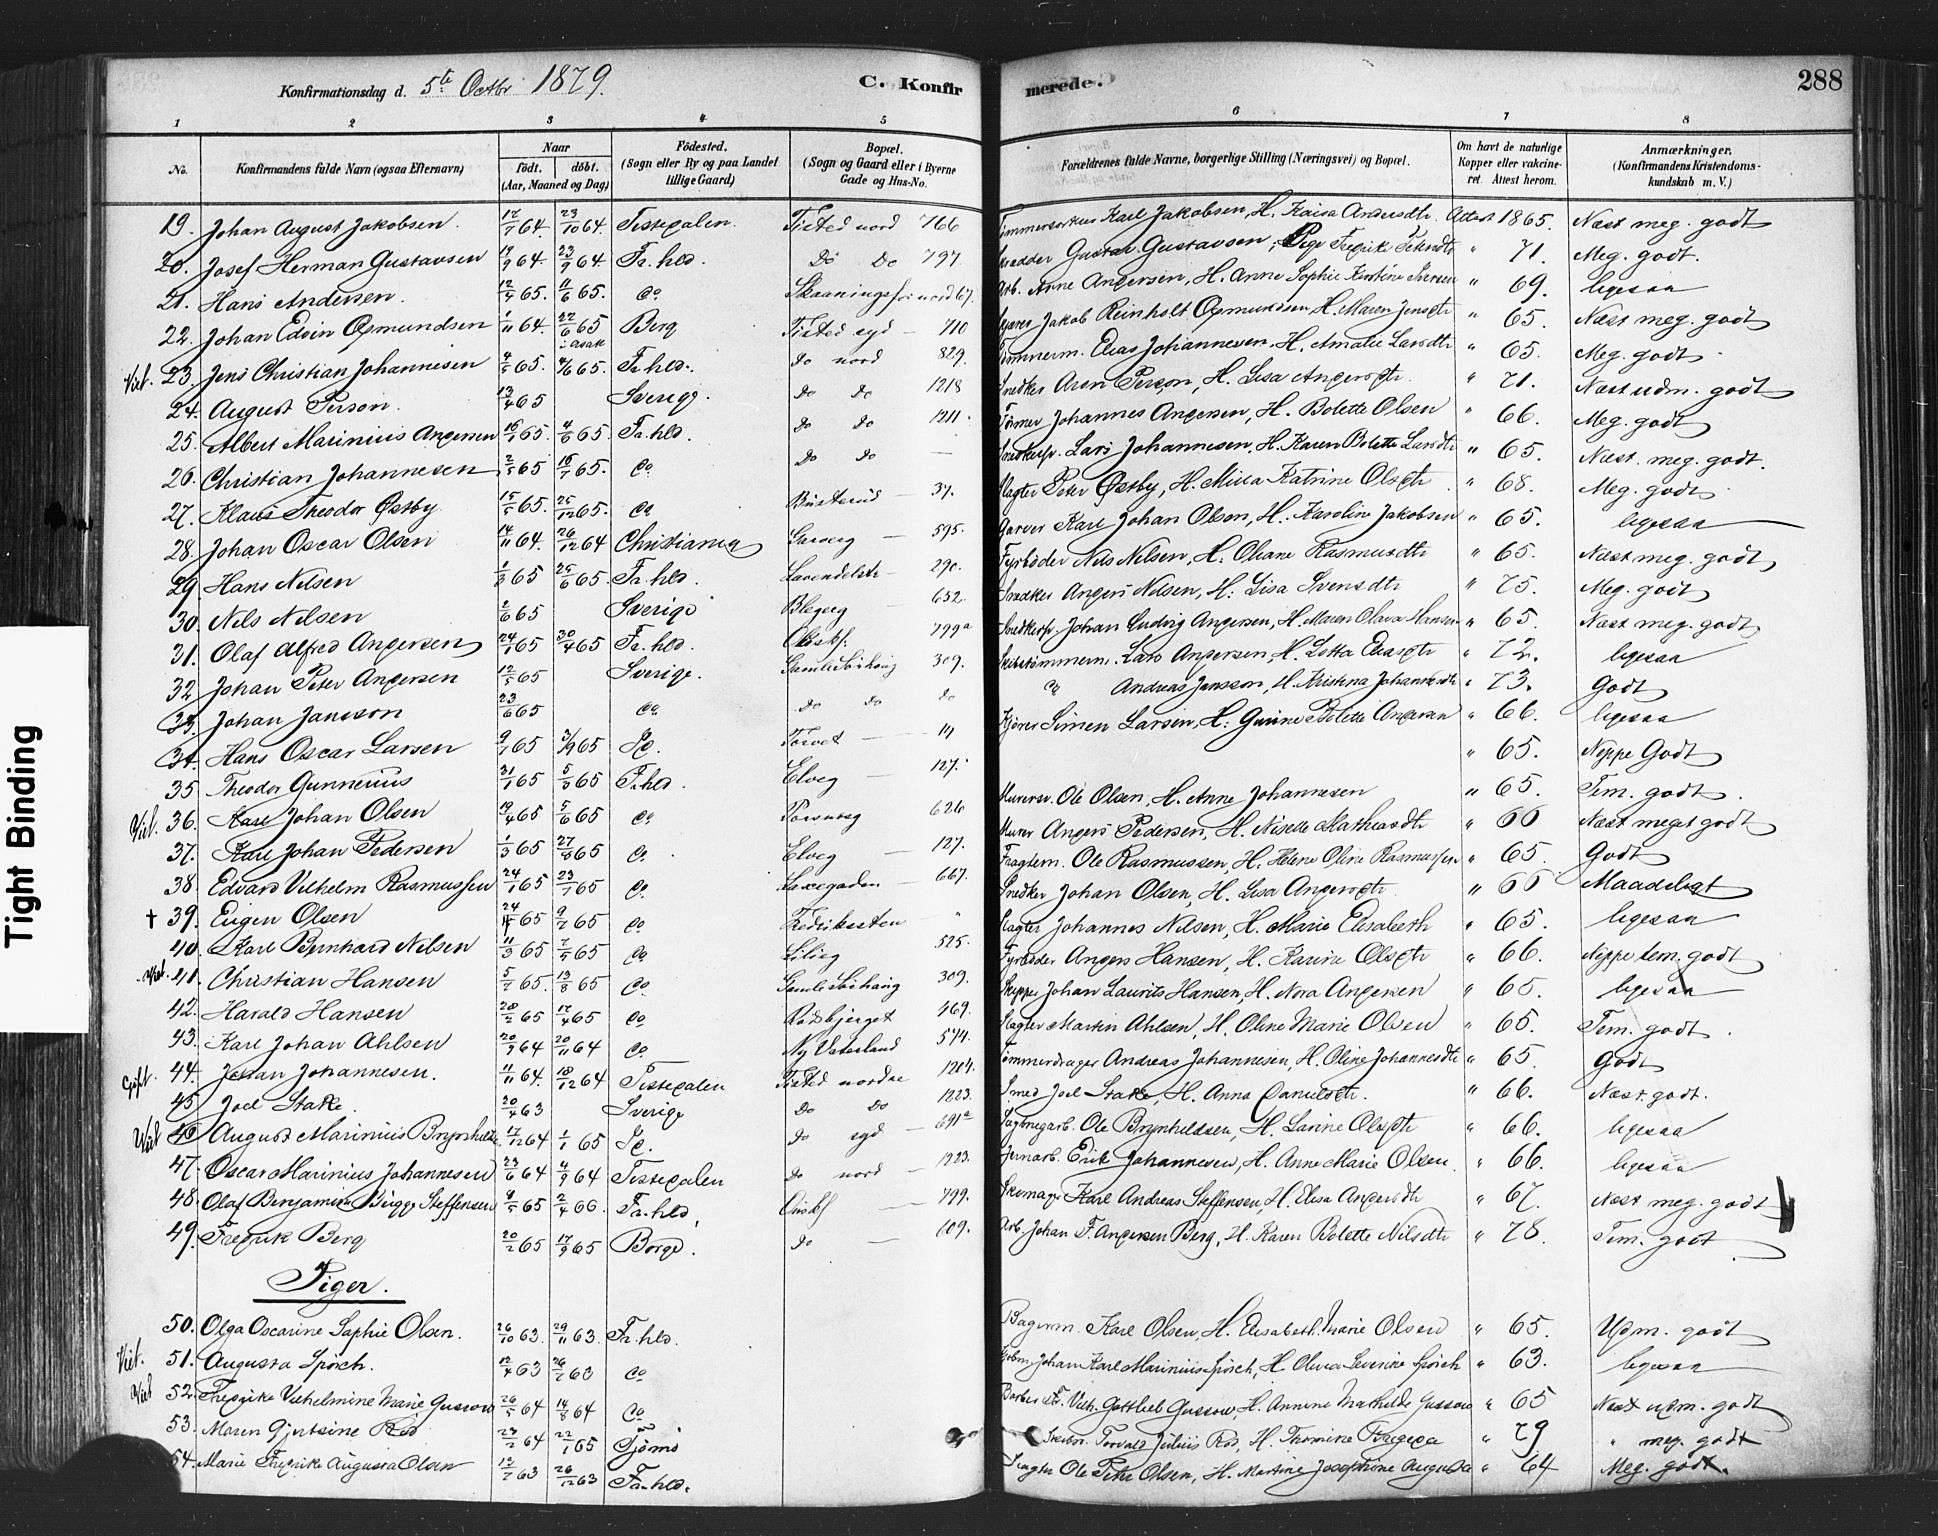 288
Konfirmationsdag d. 5te Octbr 1879. C. Konfirmerede.
1 2 3 4 5 6 7 8
No. Konfirmandens fulde Navn (ogsaa Efternavn) Naar født. døbt. (Aar, Maaned og Dag) Fødested. (Sogn eller By og paa Landet tillige Gaard) Bopæl. (Sogn og Gaard eller i Byerne Gade og Hus-No. Forældrenes fulde Navne, borgerlige Stilling (Næringsvei) og Bopæl. Om havt de naturlige Kopper eller vakcineret. Attest herom. Anmærkninger, (Konfirmandens Kristendomskundskab m. V.)
19. Johan August Jakobsen. 12/7 64. 23/10 64. Tistedalen. Tisted nord 766 Karl Jakobsen, H. Kaisa Andersdtr. Attest 1865. Næst meg. godt
20. Josef Herman Gustavsen 13/9 64. 23/9 64. Fr.hld. Do Do 797. Gustav Gustavsen, Pige Fredrik " 71. Meg. godt.
21. Hans Andersen. 12/4 65. 11/6 65. do nord 67. Arb. Arne Andersen, H. Anne Sophie Kirstine Iversen " 69. ligesaa
22. Johan Edvin Osmundsen 1/11 64. 22/6 65 i Asak Berg Tisted syd 710 Jakob Reinholt Osmundsen H. Maren Jensdtr " 65. Næst meg. godt
Viet. 23. Jens Christian Johannesen 4/5 65. 4/6 65. Fr.hld. do nord 829. Tømmerm. Elias Johannesen, H. Amalie Larsdtr " 65. Meg. godt
24. August Person. 13/4 65 Sverige. Do Do 1218 Snedker Aron Person, H. Lisa Andersdtr. " 71. Næst udm. godt
25. Albert Marinius Andersen 16/1 65. 4/6 65. Fr.hld. Do Do 1211. Johannes Andersen, H. Bolette Olsen " 66. Meg. godt
26. Christian Johannesen 2/5 65 16/7 65. do Do Do — Lars Johannesen, H. Karen Bolette Larsdtr " 65. Næst. meg. godt.
27. Klaus Theodor Østby 15/5 65. 25/12 65. do Busterud 37. Slagter Peter Østby, H. Milla Katrine Olsdtr " 68. Meg. godt
28. Johan Oscar Olsen 14/11 64. 26/12 64 Christiania 595. Garver Karl Johan Olsen, H. Karoline Jakobsen " 65. ligesaa
29. Hans Nilsen 1/3 65 25/6 65 Fr.hld. Lavendelstr. 290. Fyrbøder Nils Nilsen, H. Oliane Rasmusdtr " 65. Næst meg. godt
30. Nils Nilsen 2/6 65 Sverige 652. Snedker Anders Nilsen, H. Lisa Svensdtr " 75. Meg. godt
31. Olaf Alfred Andersen 24/1 65 30/4 65 Fr.hld. 799a Johan Ludvig Andersen, H. Maren Olava Hansen " 65. Næst meg. godt
32 Johan Peter Andersen 12/5 65 Sverige. 309. Skibstømmerm. Lars Andersen, H. Lotta Eliasdtr " 72. ligesaa
33. Johan Jansson 23/6 65 do do do do do Andreas Jansson, H. Kristina Johannesdtr " 73. Godt
34. Hans Oscar Larsen 9/1 65 3/9 65 Id. Torvet 19 Simen Larsen, H. Gurine Bolette Andersen " 66. ligesaa
35 Theodor Gunnerius 31/1 65 5/3 65 Fr.hld. Elveg 127. " 65. Neppe Godt
Viet. 36. Karl Johan Olsen 19/4 65 5/6 65 do 626 Murersv. Ole Olsen, H. Anne Johannesen " 65. Tem. godt.
37. Karl Johan Pedersen 1/3 65 27/8 65 do Elveg 127. Murer Anders Pedersen, H. Nikoline Mathiasdtr " 66 Næst meget godt
38. Edvard Vilhelm Rasmussen 24/1 65 23/7 65 do 667. Fragtem. Ole Rasmussen, H. Helene Oline Rasmussen " 65. Godt
† 39. Eugen Olsen 24/1 65 9/2 65 do Fredriksten " Snedker Johan Olsen, H. Lisa Andersdtr " 66 Maadeligt
40. Karl Bernhard Nilsen 11/3 65 7/5 65 do 525. Slagter Johannes Nilsen, H. Marie Elisabeth " 65. ligesaa
Viet. 41. Christian Hansen 5/7 65. 13/8 65 do 309. Fyrbøder Anders Hansen, H. Karine Olsdtr " 66. Neppe tem. godt
42. Harald Hansen 20/2 65 17/4 65 do Rødsbjerget 469. Skipper Johan Laurits Hansen, H. Nora Andersen " 65. ligesaa
43. Karl Johan Ahlsen 20/9 64 20/11 64 do Ny Vaterland 574. Slagter Martin Ahlsen, H. Oline Marie Olsen " 65. Tem. godt.
Gift. 44. Johan Johannesen. 11/11 64. 18/12 64 Tistedalen Tisted nordre 1204. Tømmerdrager Andreas Johannesen, H. Oline Johannesdtr " 65. Godt
45 Joel Stake. 20/4 63 Sverige Do Do 1223. Smed Joel Stake, H. Anna Danielsdtr. " 66. Næst. godt.
Viet 46 August Marinius Brynhildsen 17/12 64 1/1 65 Id. do syd 691a Sagbrugarb. Ole Brynhildsen, H. Larine Olsdtr " 66. ligesaa
47. Oscar Marinius Johannesen 23/6 64 4/9 64 Tistedalen do nord 1223. Jernarb. Erik Johannesen, H. Anne Marie Olsen. " 66. ligesaa
48. Olaf Benjamin Bügge Steffensen 4/5 65 2/4 66 Fr.hld. 799. Skomager Karl Andreas Steffensen, H. Elisa Andersdtr " 67. Næst meg. godt
49. Fredrik Berg 20/2 65 17/9 65 Borge. do 609. Arb. Johan F. Andersen Berg, H. Karen Bolette Nilsdtr " 78. Tem. godt
Piger.
50. Olga Oscarine Sophie Olsen. 26/10 63. 29/11 63. Fr.hld. Bagerm. Karl Olsen, H. Elisabeth Marie Olsen " 65. Udm. godt
Viet. 51. Augusta Spørch. 12/4 63 26/7 63 do Johan Karl Marinius Spørch, H. Olivia Severine Spørch " 63. ligesaa
Viet 52. Fredrike Vilhelmine Marie Gussow 26/5 64 14/8 64 do Barber Fr. Vilh. Gottlieb Gussow, H. Annine Mathilde Gussow " 65 Næst udm. godt
53. Maren Gjurtsine Rød 23/2 64 22/1 65 Tjømø Torvald Julius Rød, H. Thomine Fredrikka " 79 " meg. godt
54. Marie Fredrike Augusta Olsen 13/7 63 26/12 63 Fr.hld. Slagter Ole Peter Olsen, H. Martine Josephine Augusta " 64 Meg. godt.
Tight Binding